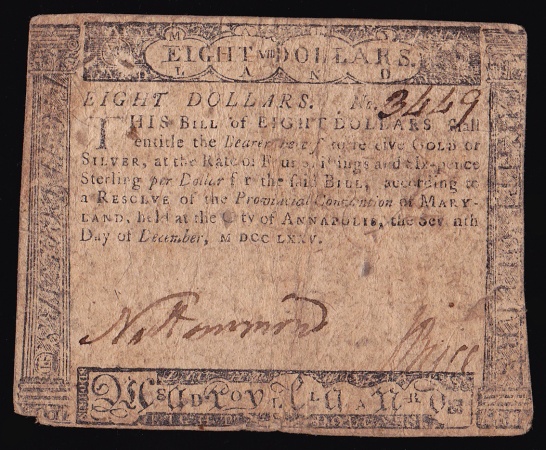 M D
EIGHT DOLLARS.
L A N D
EIGHT DOLLARS. No. 3449
THIS BILL of EIGHT DOLLARS shall
entitle the Bearer to receive GOLD or
SILVER, at the Rate of Four Shillings and Six-pence
Sterling per Dollar for the said BILL, according to
a RESOLVE of the Provincial Convention of MARY-
LAND, held at the City of ANNAPOLIS, the Seventh
Day of December, MDCCLXXV.
Ns Hammond
Price